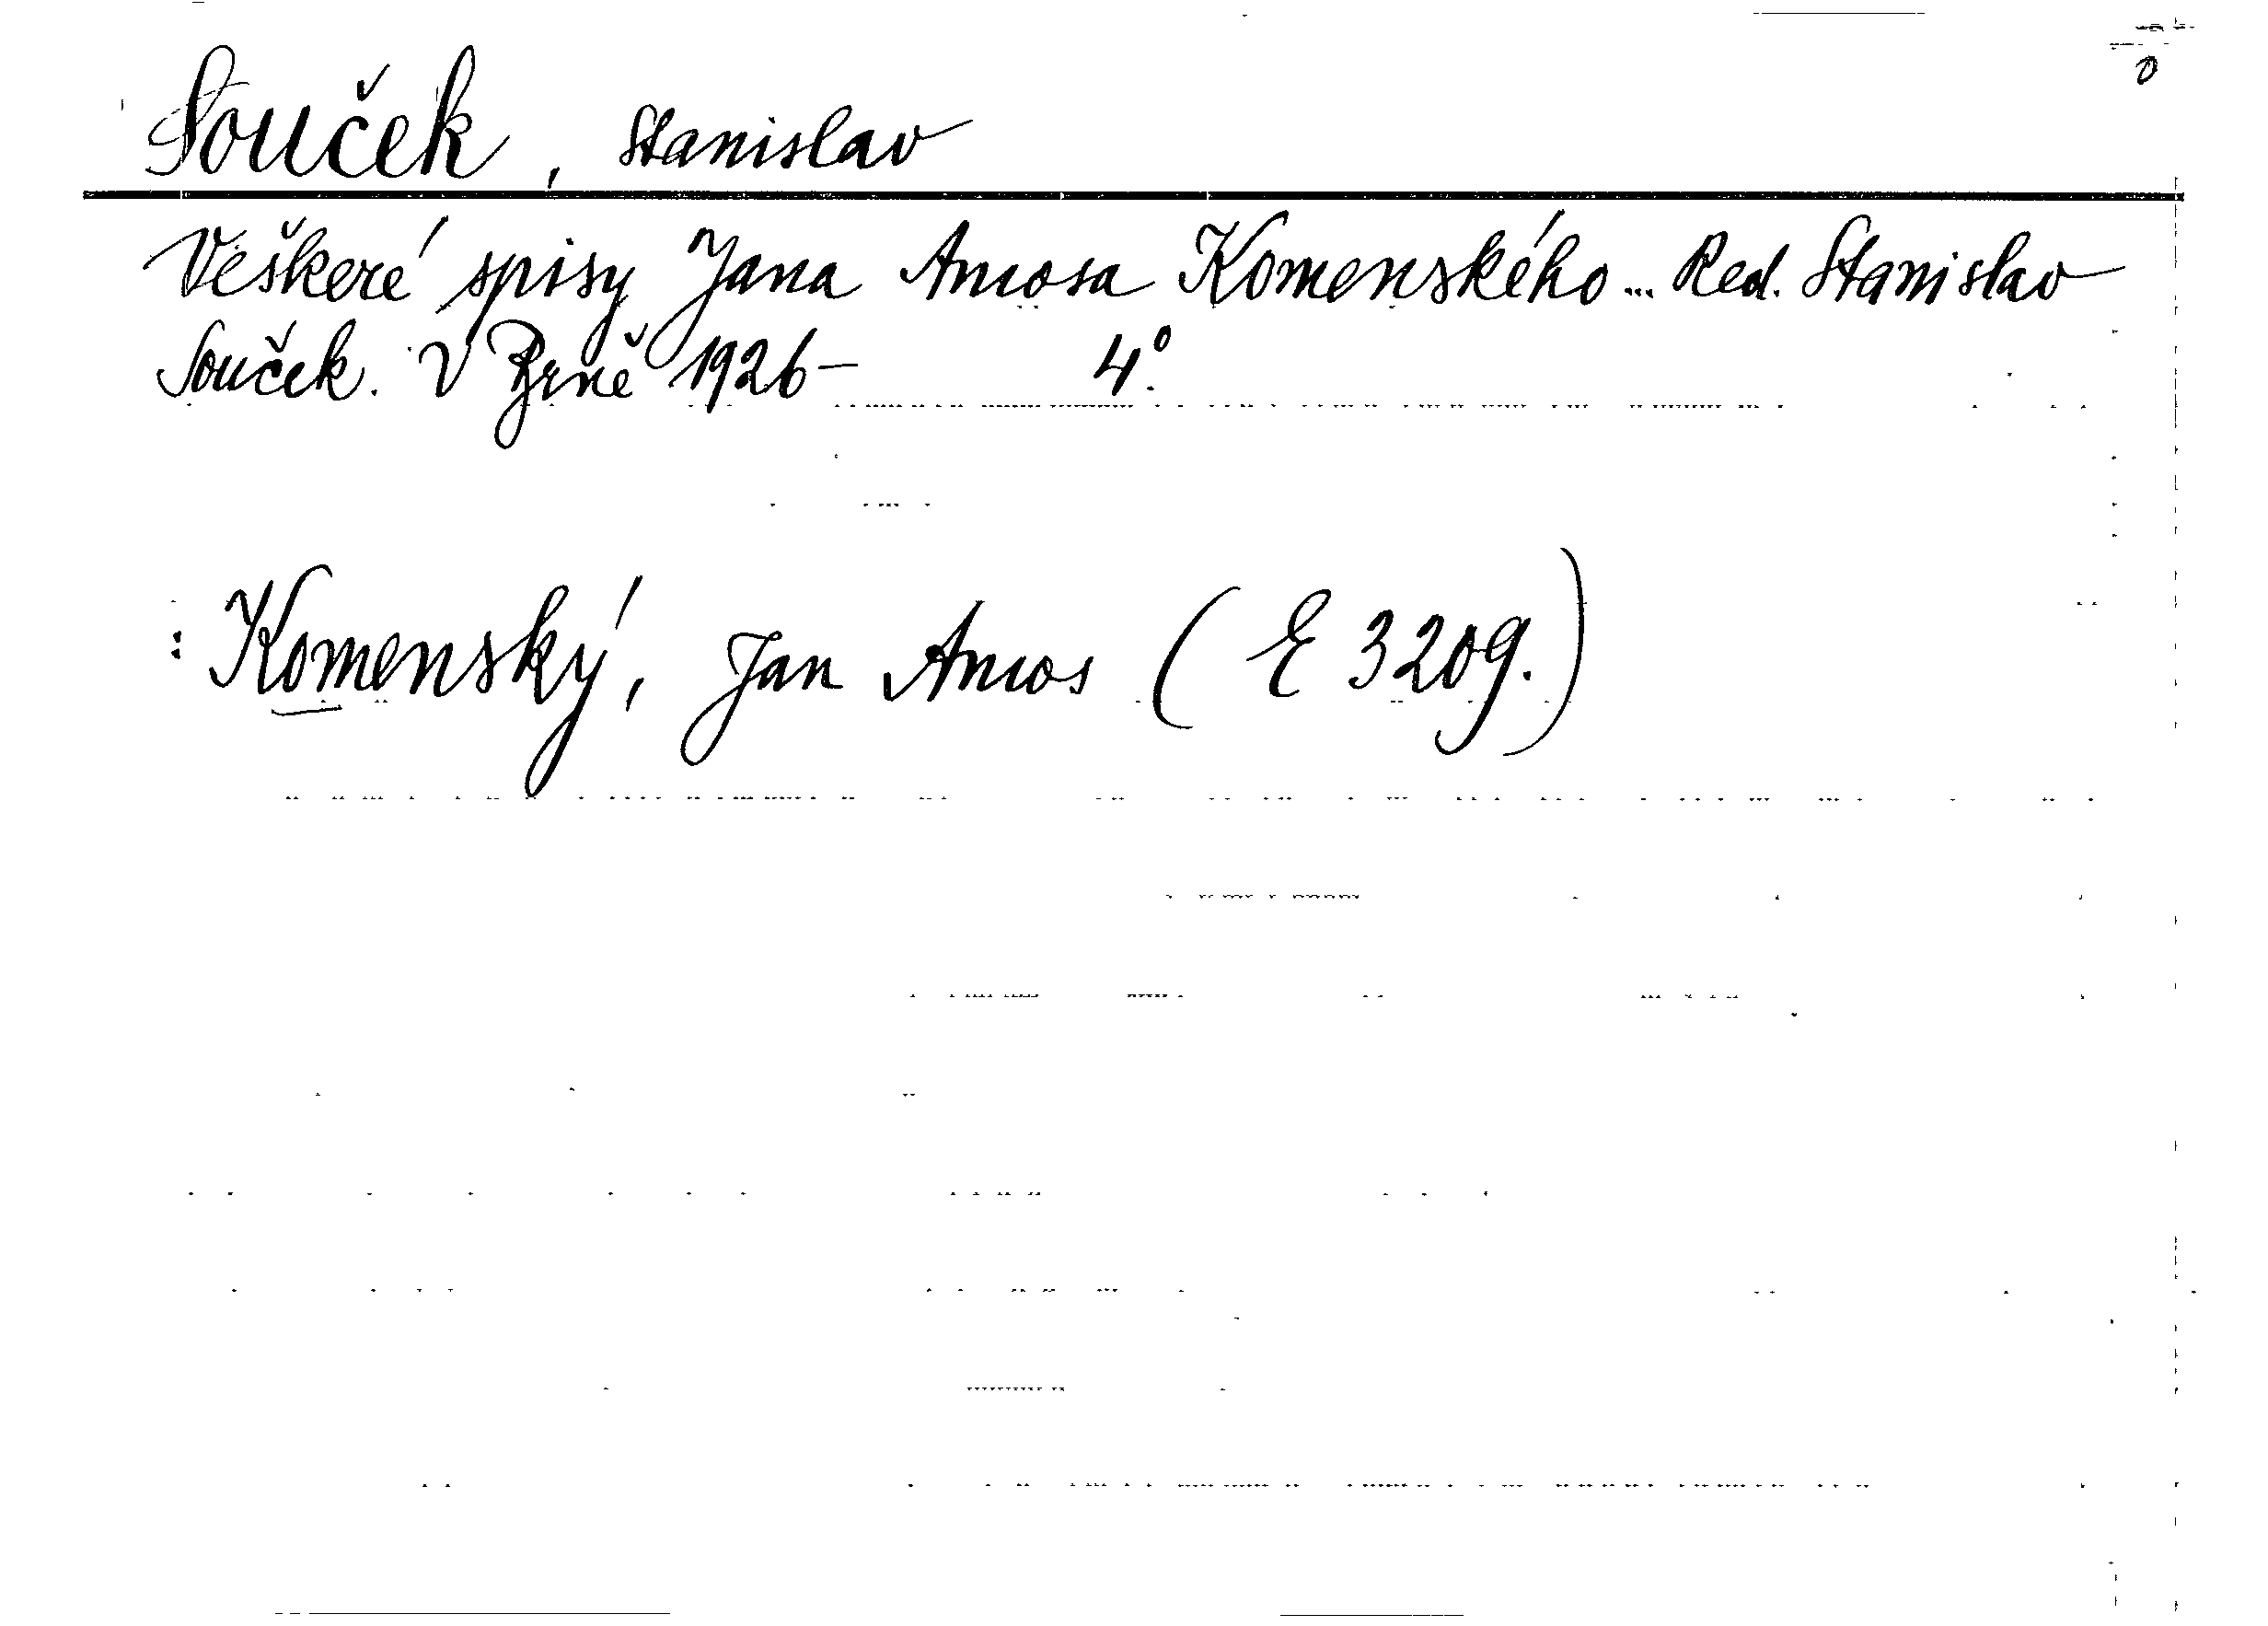 Souček, Stanislav
Veškeré spisy Jana Amosa Komenského... Red. Stanislav
Souček. V Brně 1926- 4°.
: Komenský, Jan Amos (E 3209.)